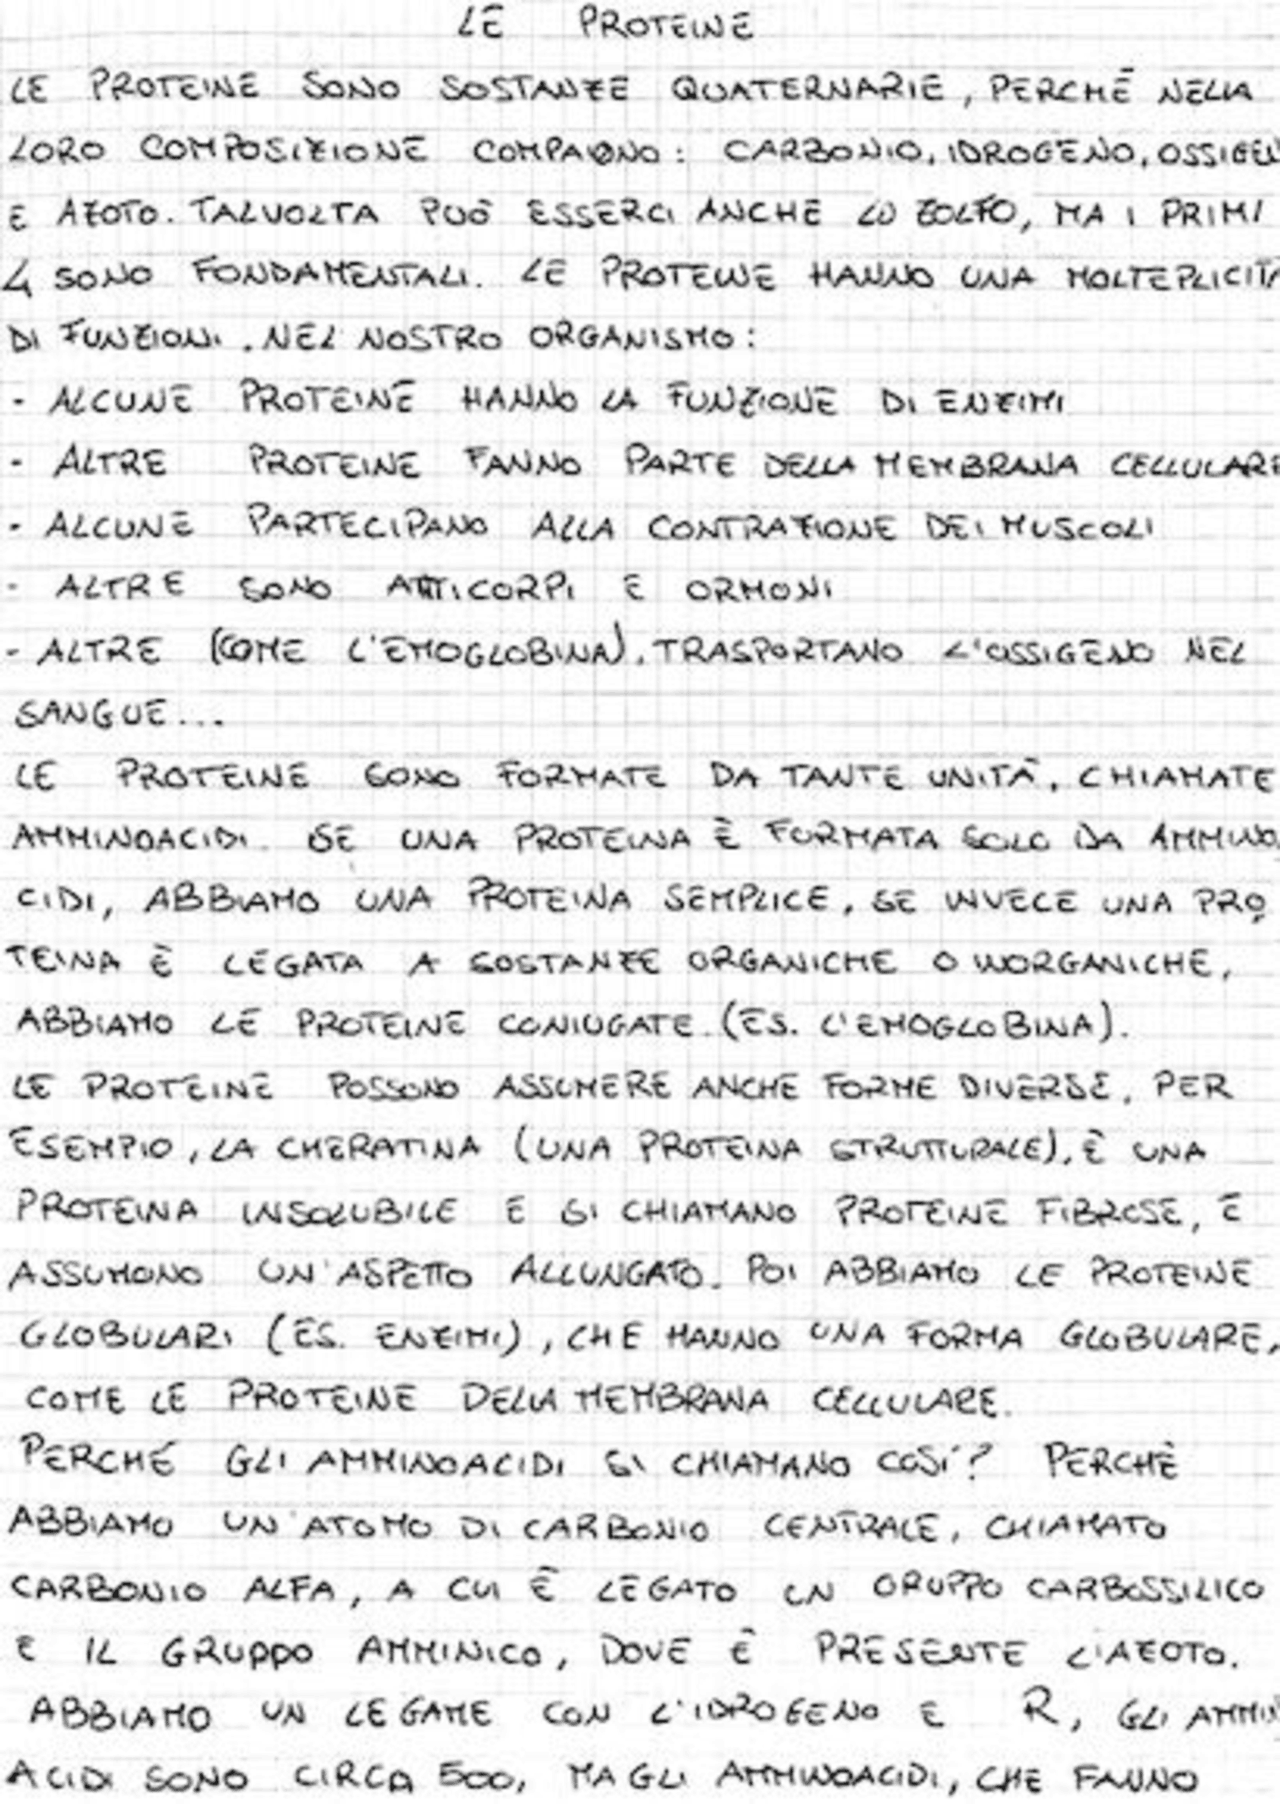 LE PROTEINE
LE PROTEINE SONO SOSTANZE QUATERNARIE, PERCHÉ NELLA
LORO COMPOSIZIONE COMPAIONO: CARBONIO, IDROGENO, OSSIGEN
E AZOTO. TALVOLTA PUÒ ESSERCI ANCHE LO ZOLFO, MA I PRIMI
4 SONO FONDAMENTALI. LE PROTEINE HANNO UNA MOLTEPLICITÀ
DI FUNZIONI. NEL NOSTRO ORGANISMO:
- ALCUNE PROTEINE HANNO LA FUNZIONE DI ENZIMI
- ALTRE PROTEINE FANNO PARTE DELLA MEMBRANA CELLULARE
- ALCUNE PARTECIPANO ALLA CONTRAZIONE DEI MUSCOLI
- ALTRE SONO ANTICORPI E ORMONI
- ALTRE (COME L'EMOGLOBINA), TRASPORTANO L'OSSIGENO NEL
SANGUE...
LE PROTEINE SONO FORMATE DA TANTE UNITÀ, CHIAMATE
AMMINOACIDI. SE UNA PROTEINA È FORMATA SOLO DA AMMINO
CIDI, ABBIAMO UNA PROTEINA SEMPLICE, SE INVECE UNA PRO
TEINA È LEGATA A SOSTANZE ORGANICHE O INORGANICHE,
ABBIAMO LE PROTEINE CONIUGATE (ES. L'EMOGLOBINA).
LE PROTEINE POSSONO ASSUMERE ANCHE FORME DIVERSE, PER
ESEMPIO, LA CHERATINA (UNA PROTEINA STRUTTURALE), È UNA
PROTEINA INSOLUBILE E SI CHIAMANO PROTEINE FIBROSE, E
ASSUMONO UN'ASPETTO ALLUNGATO. POI ABBIAMO LE PROTEINE
GLOBULARI (ES. ENZIMI), CHE HANNO UNA FORMA GLOBULARE,
COME LE PROTEINE DELLA MEMBRANA CELLULARE.
PERCHÉ GLI AMMINOACIDI SI CHIAMANO COSÌ? PERCHÈ
ABBIAMO UN'ATOMO DI CARBONIO CENTRALE, CHIAMATO
CARBONIO ALFA, A CUI È LEGATO UN GRUPPO CARBOSSILICO
E IL GRUPPO AMMINICO, DOVE È PRESENTE L'AZOTO.
ABBIAMO UN LEGAME CON L'IDROGENO E R, GLI AMMIN
ACIDI SONO CIRCA 500, MA GLI AMMINOACIDI, CHE FANNO